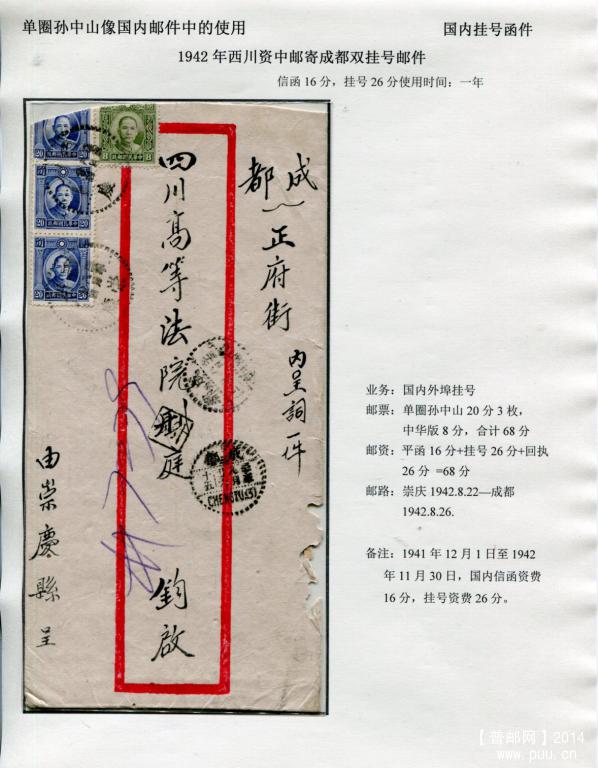 单圈孙中山像国内邮件中的使用
国内挂号函件
1942年西川资中邮寄成都双挂号邮件
信函16分，挂号26分使用时间：一年
成都
正府街
内呈詞一件
四川高等法院
庭
鈞啟
由崇慶縣呈
20
20
20
20
20
20
8
8
CHENGTU(3)
业务：国内外埠挂号
邮票：单圈孙中山20分3枚，
中华版8分，合计68分
邮资：平函16分+挂号26分+回执
26分 =68分
邮路：崇庆1942.8.22—成都
1942.8.26.
备注：1941年12月1日至1942
年11月30日，国内信函资费
16分，挂号资费26分。
【普邮网】2014
www.puu.cn